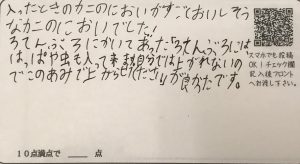 入ったときのカニのにおいがすごくおいしそう
なカニのにおいでした。
ろてんぶろにかいてあった「ろてんぶろには
は、はや虫も入って来ます。自分では上がれないの
でこのあみで上からして下さい」が良かったです。
スマホでも投稿
OK!チェック欄
記入後フロント
へお渡し下さい。
10点満点で 点